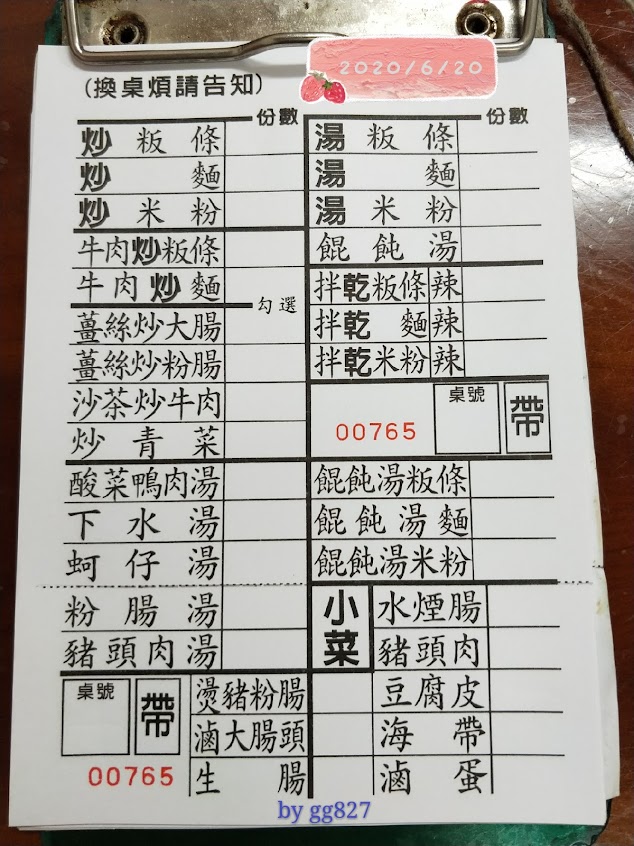 2020/6/20
(換桌煩請告知)
份數
炒粄條
炒麵
炒米粉
牛肉炒粄條
牛肉炒麵
勾選
薑絲炒大腸
薑絲炒粉腸
沙茶炒牛肉
炒青菜
酸菜鴨肉湯
下水湯
蚵仔湯
粉腸湯
豬頭肉湯
桌號
帶
00765
燙豬粉腸
滷大腸頭
生腸
份數
湯粄條
湯麵
湯米粉
餛飩湯
拌乾粄條辣
拌乾麵辣
拌乾米粉辣
00765
桌號
帶
餛飩湯粄條
餛飩湯麵
餛飩湯米粉
小菜
水煙腸
豬頭肉
豆腐皮
海帶
滷蛋
by gg827